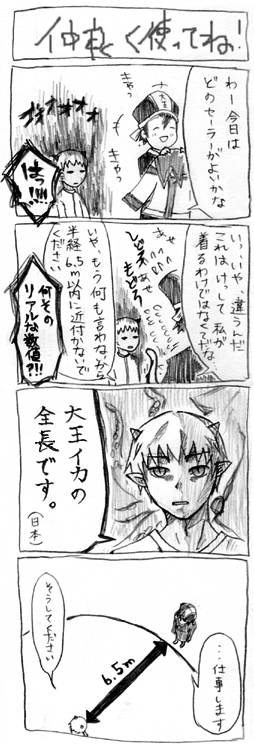 仲良く使ってね!
わー今日は
どのセーラーがよいかな
きゃっ
きゃっ
オオオオオ
はっ!!!!
いっ、いや、違うんだ
これは、けっして私が
着るわけではなくてだな、
あせ
あせ
しどろ
もどろ
いや、もう何も言わないから
半径6.5m以内に近付かないで
ください
何その
リアルな数値?!!
大王イカの
全長です。
(日本)
…仕事します
6.5m
そうしてください